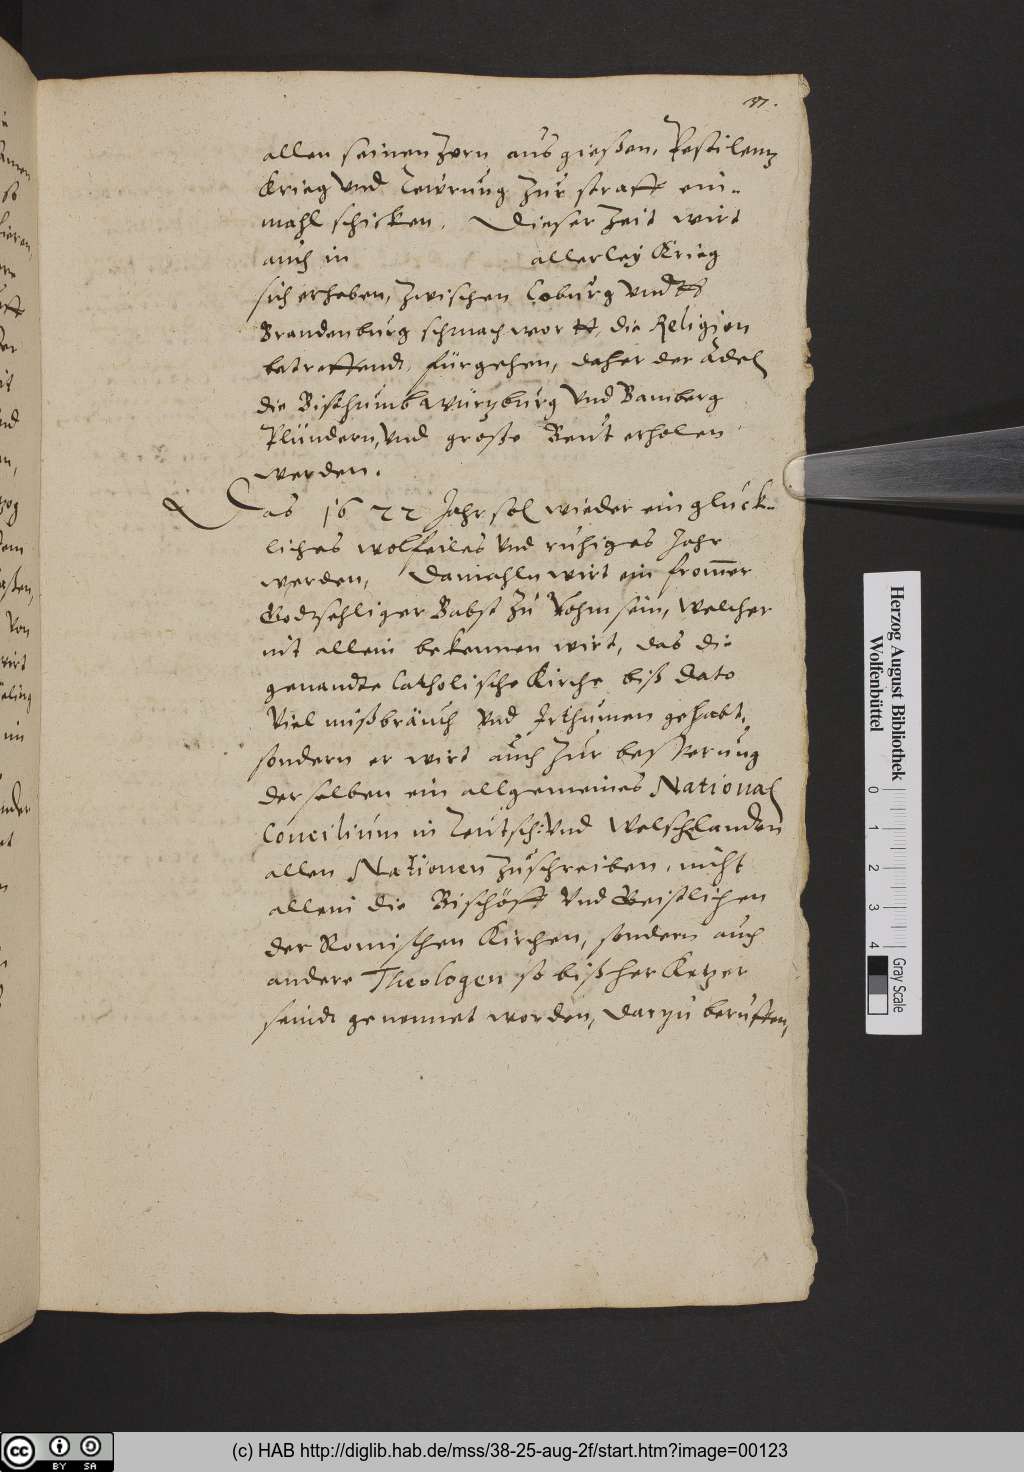 allen seinen Zorn ausgießen, Pestilentz
Krieg Vnd Tewrung zur straff ein-
mahl schicken. Dieser Zeit wirt
auch in allerley Krieg
sich erheben, zwischen Coburg Vnd
Brandenburg schmachwortt, die Religion
betreffendt, fürgehen, daher der Adel
die Bisthumb Würtzburg Vnd Bamberg
Plündern, Vnd große Beut erholen
werden.
Das 1622 Jahr sol wieder ein glück-
liches wolfeiles Vnd ruhiges Jahr
werden, Damahln wirt ein frommer
Godtsehliger Babst zu Rohm sein, Welcher
nit allein bekennen wirt, das die
genandte Catholische Kirche biß dato
Viel mißbräuch Vnd Irthumen gehabt,
sondern er wirt auch zur besserung
derselben ein allgemeines National
Concilium in Teutsch: Vnd Welschlanden
allen Nationen zuschreiben, nicht
allein die Bischöff Vnd Geistlichen
der Romischen Kirchen, sondern auch
andere Theologen so bißher Ketzer
seindt genennet worden, dartzu beruffen,
Herzog August Bibliothek
Wolfenbüttel
0 1 2 3 4
Gray Scale
cc BY SA
(c) HAB http://diglib.hab.de/mss/38-25-aug-2f/start.htm?image=00123